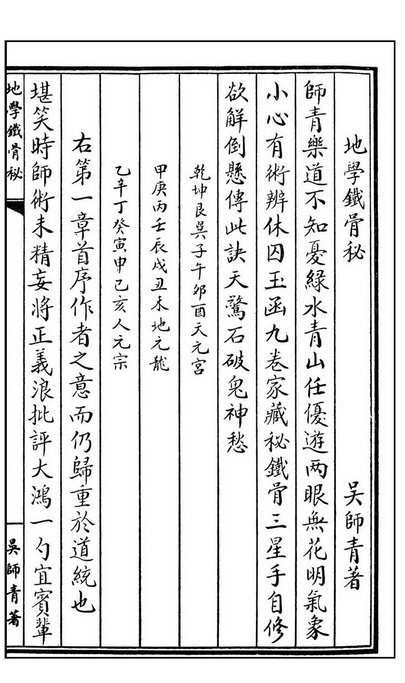 地學鐵骨秘 吳師青著
師青樂道不知憂綠水青山任優遊两眼無花明氣象
小心有術辨休囚玉函九卷家藏秘鐵骨三星手自修
欲解倒懸傳此訣天驚石破鬼神愁
乾坤艮巽子午卯酉天元宮
甲庚丙壬辰戌丑未地元龍
乙辛丁癸寅申己亥人元宗
右第一章首序作者之意而仍歸重於道統也
堪笑時師術未精妄將正義浪批評大鴻一勺宜賓輩
地學鐵骨秘
吳師青著